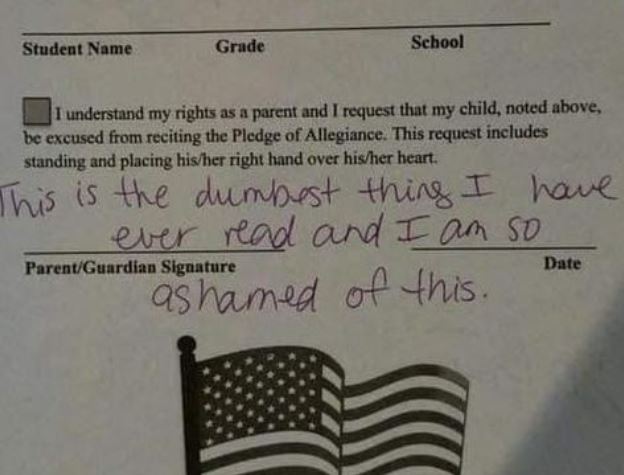 Student Name Grade School
I understand my rights as a parent and I request that my child, noted above,
be excused from reciting the Pledge of Allegiance. This request includes
standing and placing his/her right hand over his/her heart.
This is the dumbest thing I have
ever read and I am so
Parent/Guardian Signature Date
ashamed of this.